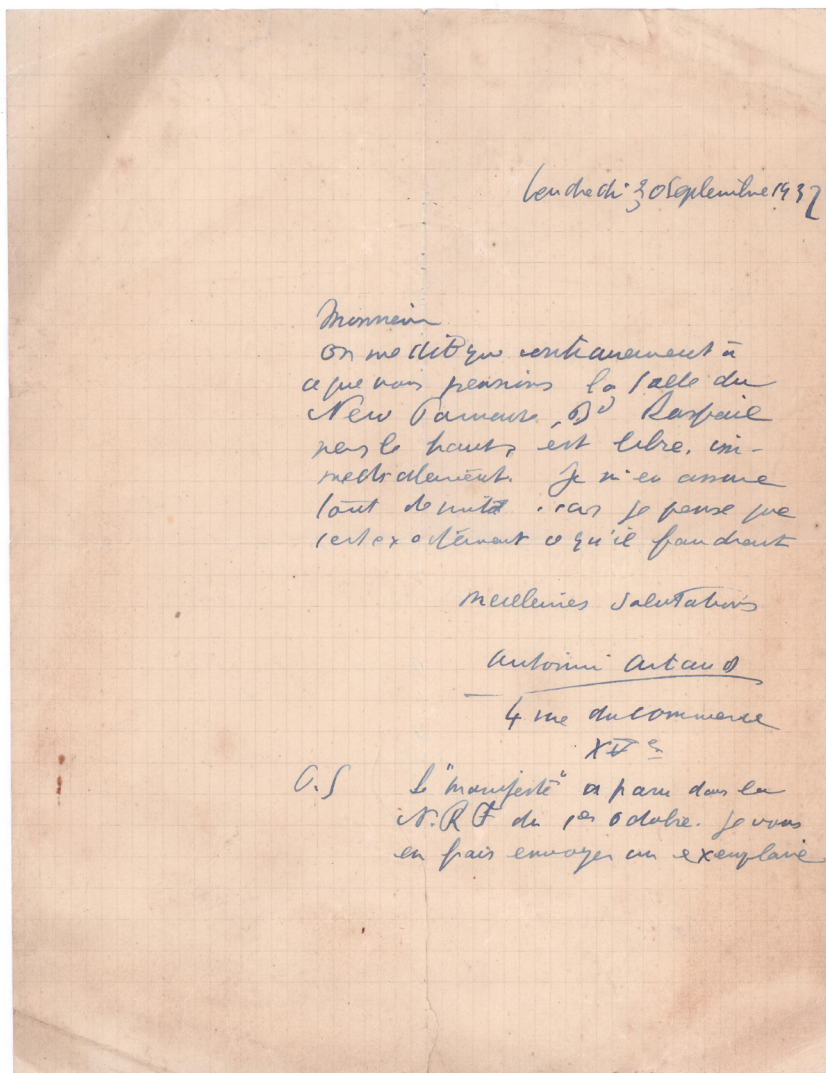 Vendredi 30 Septembre 1932
Monsieur
On me dit que contrairement à
ce que vous pensions la salle du
New Parnasse, Bd Raspail
vers le haut, est libre, im-
mediatement. Je m'en assure
tout de suite car je pense que
c'est exactement ce qu'il faudrait
Meilleures Salutations
Antonin Artaud
4 rue du Commerce
XVe
P.S Le "manifeste" a paru dans la
N.R.F du 1er Octobre. Je vous
en fais envoyer un exemplaire